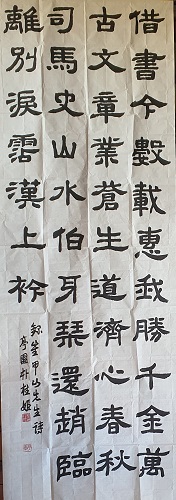 借書今數載惠我勝千金萬
古文章業蒼生道濟心春秋
司馬史山水伯牙琴還趙臨
離別淚霑漢上衿
山先生詩
亭園朴桂姬